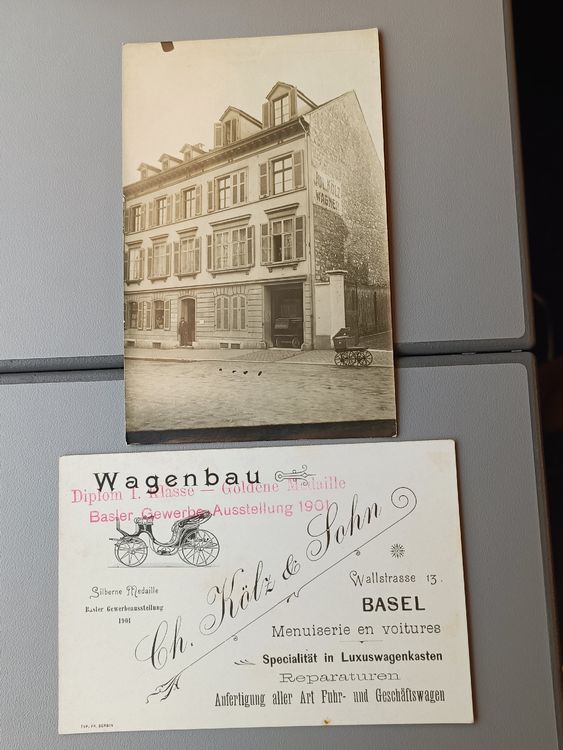 JUL. KÖLZ
WAGNER
Wagenbau
Diplom I. Klasse — Goldene Medaille
Basler Gewerbe-Ausstellung 1901
Silberne Medaille
Basler Gewerbeausstellung
1901
Ch. Kölz & Sohn
Wallstrasse 13.
BASEL
Menuiserie en voitures
Specialität in Luxuswagenkasten
Reparaturen
Anfertigung aller Art Fuhr- und Geschäftswagen